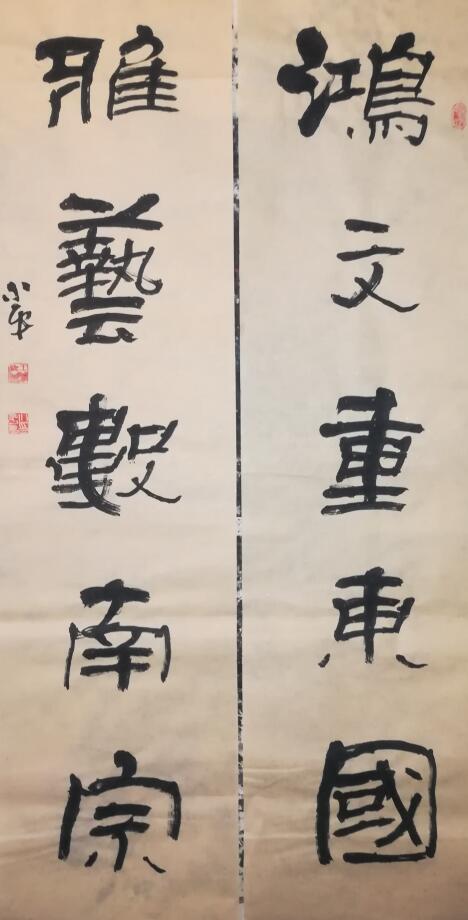 鸿文重東國
雅藝數南宗
小平